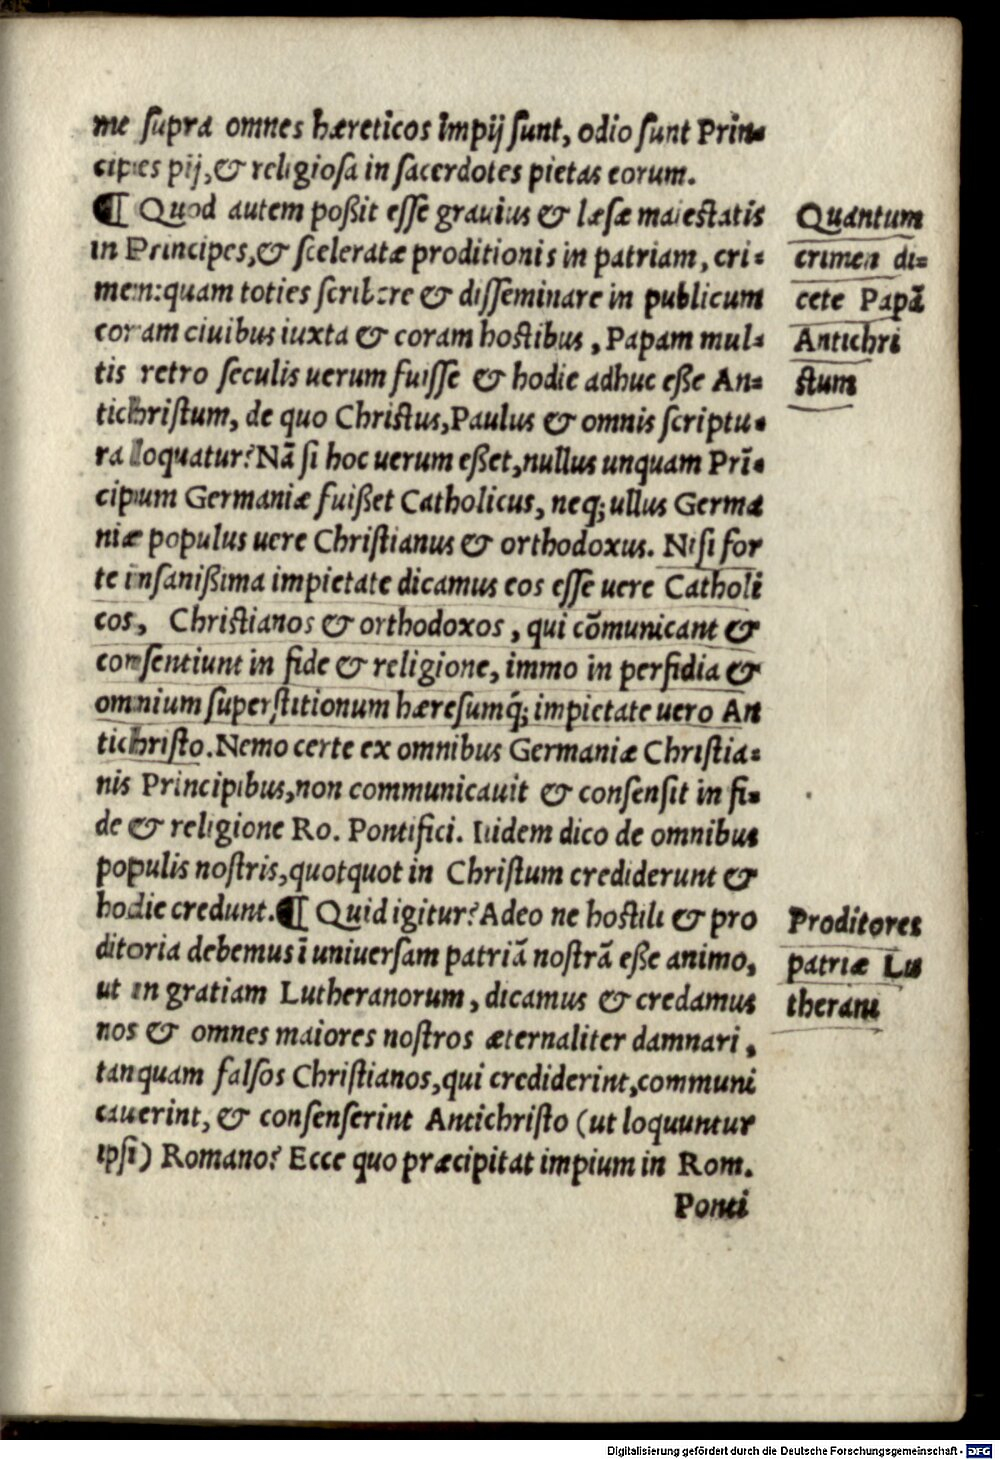 me ſupra omnes hæreticos Impij ſunt, odio ſunt Prin⸗
cipes pij, & religioſa in ſacerdotes pietas eorum.
¶ Quod autem poßit eſſe grauius & læſæ maieſtatis
in Principes, & ſceleratæ proditionis in patriam, cri⸗
men: quam toties ſcribere & diſſeminare in publicum
coram ciuibus iuxta & coram hoſtibus, Papam mul⸗
tis retro ſeculis uerum fuiſſe & hodie adhuc eße An⸗
tichriſtum, de quo Chriſtus, Paulus & omnis ſcriptu⸗
ra loquatur? Nã ſi hoc uerum eßet, nullus unquam Prĩ⸗
cipum Germaniæ fuißet Catholicus, neq; ullus Germa
niæ populus uere Chriſtianus & orthodoxus. Niſi for
te inſanißima impietate dicamus eos eſſe uere Catholi
cos, Chriſtianos & orthodoxos, qui cõmunicant &
conſentiunt in fide & religione, immo in perfidia &
omnium ſuperſtitionum hæreſumq́; impietate uero An
tichriſto. Nemo certe ex omnibus Germaniæ Chriſtia⸗
nis Principibus, non communicauit & conſenſit in fi⸗
de & religione Ro. Pontifici. Itidem dico de omnibus
populis noſtris, quotquot in Chriſtum crediderunt &
hodie credunt. ¶ Quid igitur? Adeo ne hoſtili & pro
ditoria debemus ĩ uniuerſam patriã noſtrã eße animo,
ut in gratiam Lutheranorum, dicamus & credamus
nos & omnes maiores noſtros æternaliter damnari,
tanquam falſos Chriſtianos, qui crediderint, communi
cauerint, & conſenſerint Antichriſto (ut loquuntur
ipſi) Romano? Ecce quo præcipitat impium in Rom.
Ponti
Quantum
crimen di⸗
cete Papã
Antichri
ſtum
Proditores
patriæ Lu
therani
Digitalisierung gefördert durch die Deutsche Forschungsgemeinschaft - DFG